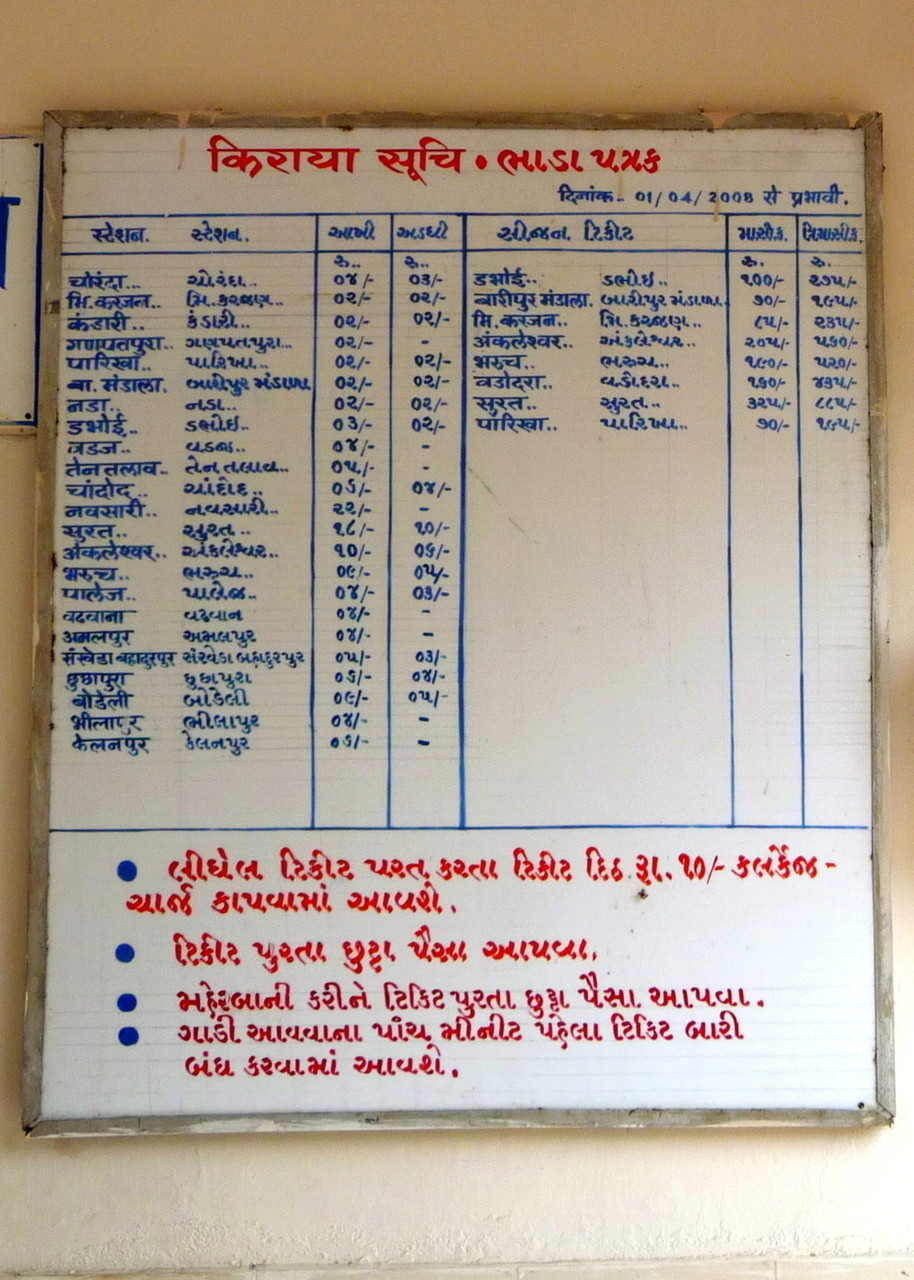 किराया सूचि • ભાડા પત્રક
दिनांक - ०१/०४/२००८ से प्रभावी.
સ્ટેશન. સ્ટેશન. આખી અડધી સીજન ટિકીટ માસીક. ત્રિમાસીક.
રુ.. રુ.. રુ. રુ.
चोरंदा... ચોરંદા... ૦૪/- ૦૩/- डभोई.. ડભોઇ.. ૧૦૦/- ૨૭૫/-
मि. करजन.. મિ. કરજણ.. ૦૨/- ૦૨/- बारीपुर मंडाला. બારીપુર મંડાળા. ૭૦/- ૧૯૫/-
कंडारी.. કંડારી.. ૦૨/- ૦૨/- मि. करजन.. મિ. કરજણ.. ૮૫/- ૨૩૫/-
गणपतपुरा.. ગણપતપુરા.. ૦૨/- - अंकलेश्वर.. અંકલેશ્વર.. ૨૦૫/- ૫૬૦/-
पारिखा.. પારિખા.. ૦૨/- ૦૨/- भरुच.. ભરુચ.. ૧૯૦/- ૫૨૦/-
बा. मंडाला. બારીપુર મંડાળા ૦૨/- ૦૨/- वडोदरा.. વડોદરા.. ૧૬૦/- ૪૩૫/-
नडा.. નડા.. ૦૨/- ૦૨/- सुरत.. સુરત.. ૩૨૫/- ૮૮૫/-
डभोई.. ડભોઇ.. ૦૩/- ૦૨/- पारिखा.. પારિખા.. ૭૦/- ૧૯૫/-
વડજ.. ૦૪/- -
तेन तलाव.. તેન તલાવ.. ૦૫/- -
चांदोद.. ચાંદોદ.. ૦૬/- ૦૪/-
नवसारी.. નવસારી.. ૨૨/- -
सुरत.. સુરત.. ૧૮/- ૧૦/-
अंकलेश्वर.. અંકલેશ્વર.. ૧૦/- ૦૬/-
भरुच.. ભરુચ.. ૦૯/- ૦૫/-
पालेज.. પાલેજ.. ૦૪/- ૦૩/-
वढवाना વઢવાન ૦૪/- -
अमलपुर અમલપુર ૦૪/- -
संखेडा बहादुरपुर સંખેડા બહાદુરપુર ૦૫/- ૦૩/-
छुछापुरा છુછાપુરા ૦૬/- ૦૪/-
बोडेली બોડેલી ૦૯/- ૦૫/-
भीलापुर ભીલાપુર ૦૪/- -
केलनपुर કેલનપુર ૦૬/- -
• લીધેલ ટિકીટ પરત કરતા ટિકીટ દિઠ રૂા. ૧૦/- કલર્કેજ -
ચાર્જ કાપવામાં આવશે.
• ટિકીટ પુરતા છુટ્ટા પૈસા આપવા.
• મહેરબાની કરીને ટિકિટ પુરતા છુટ્ટા પૈસા આપવા.
• ગાડી આવવાના પાંચ મીનીટ પહેલા ટિકિટ બારી
બંધ કરવામાં આવશે.